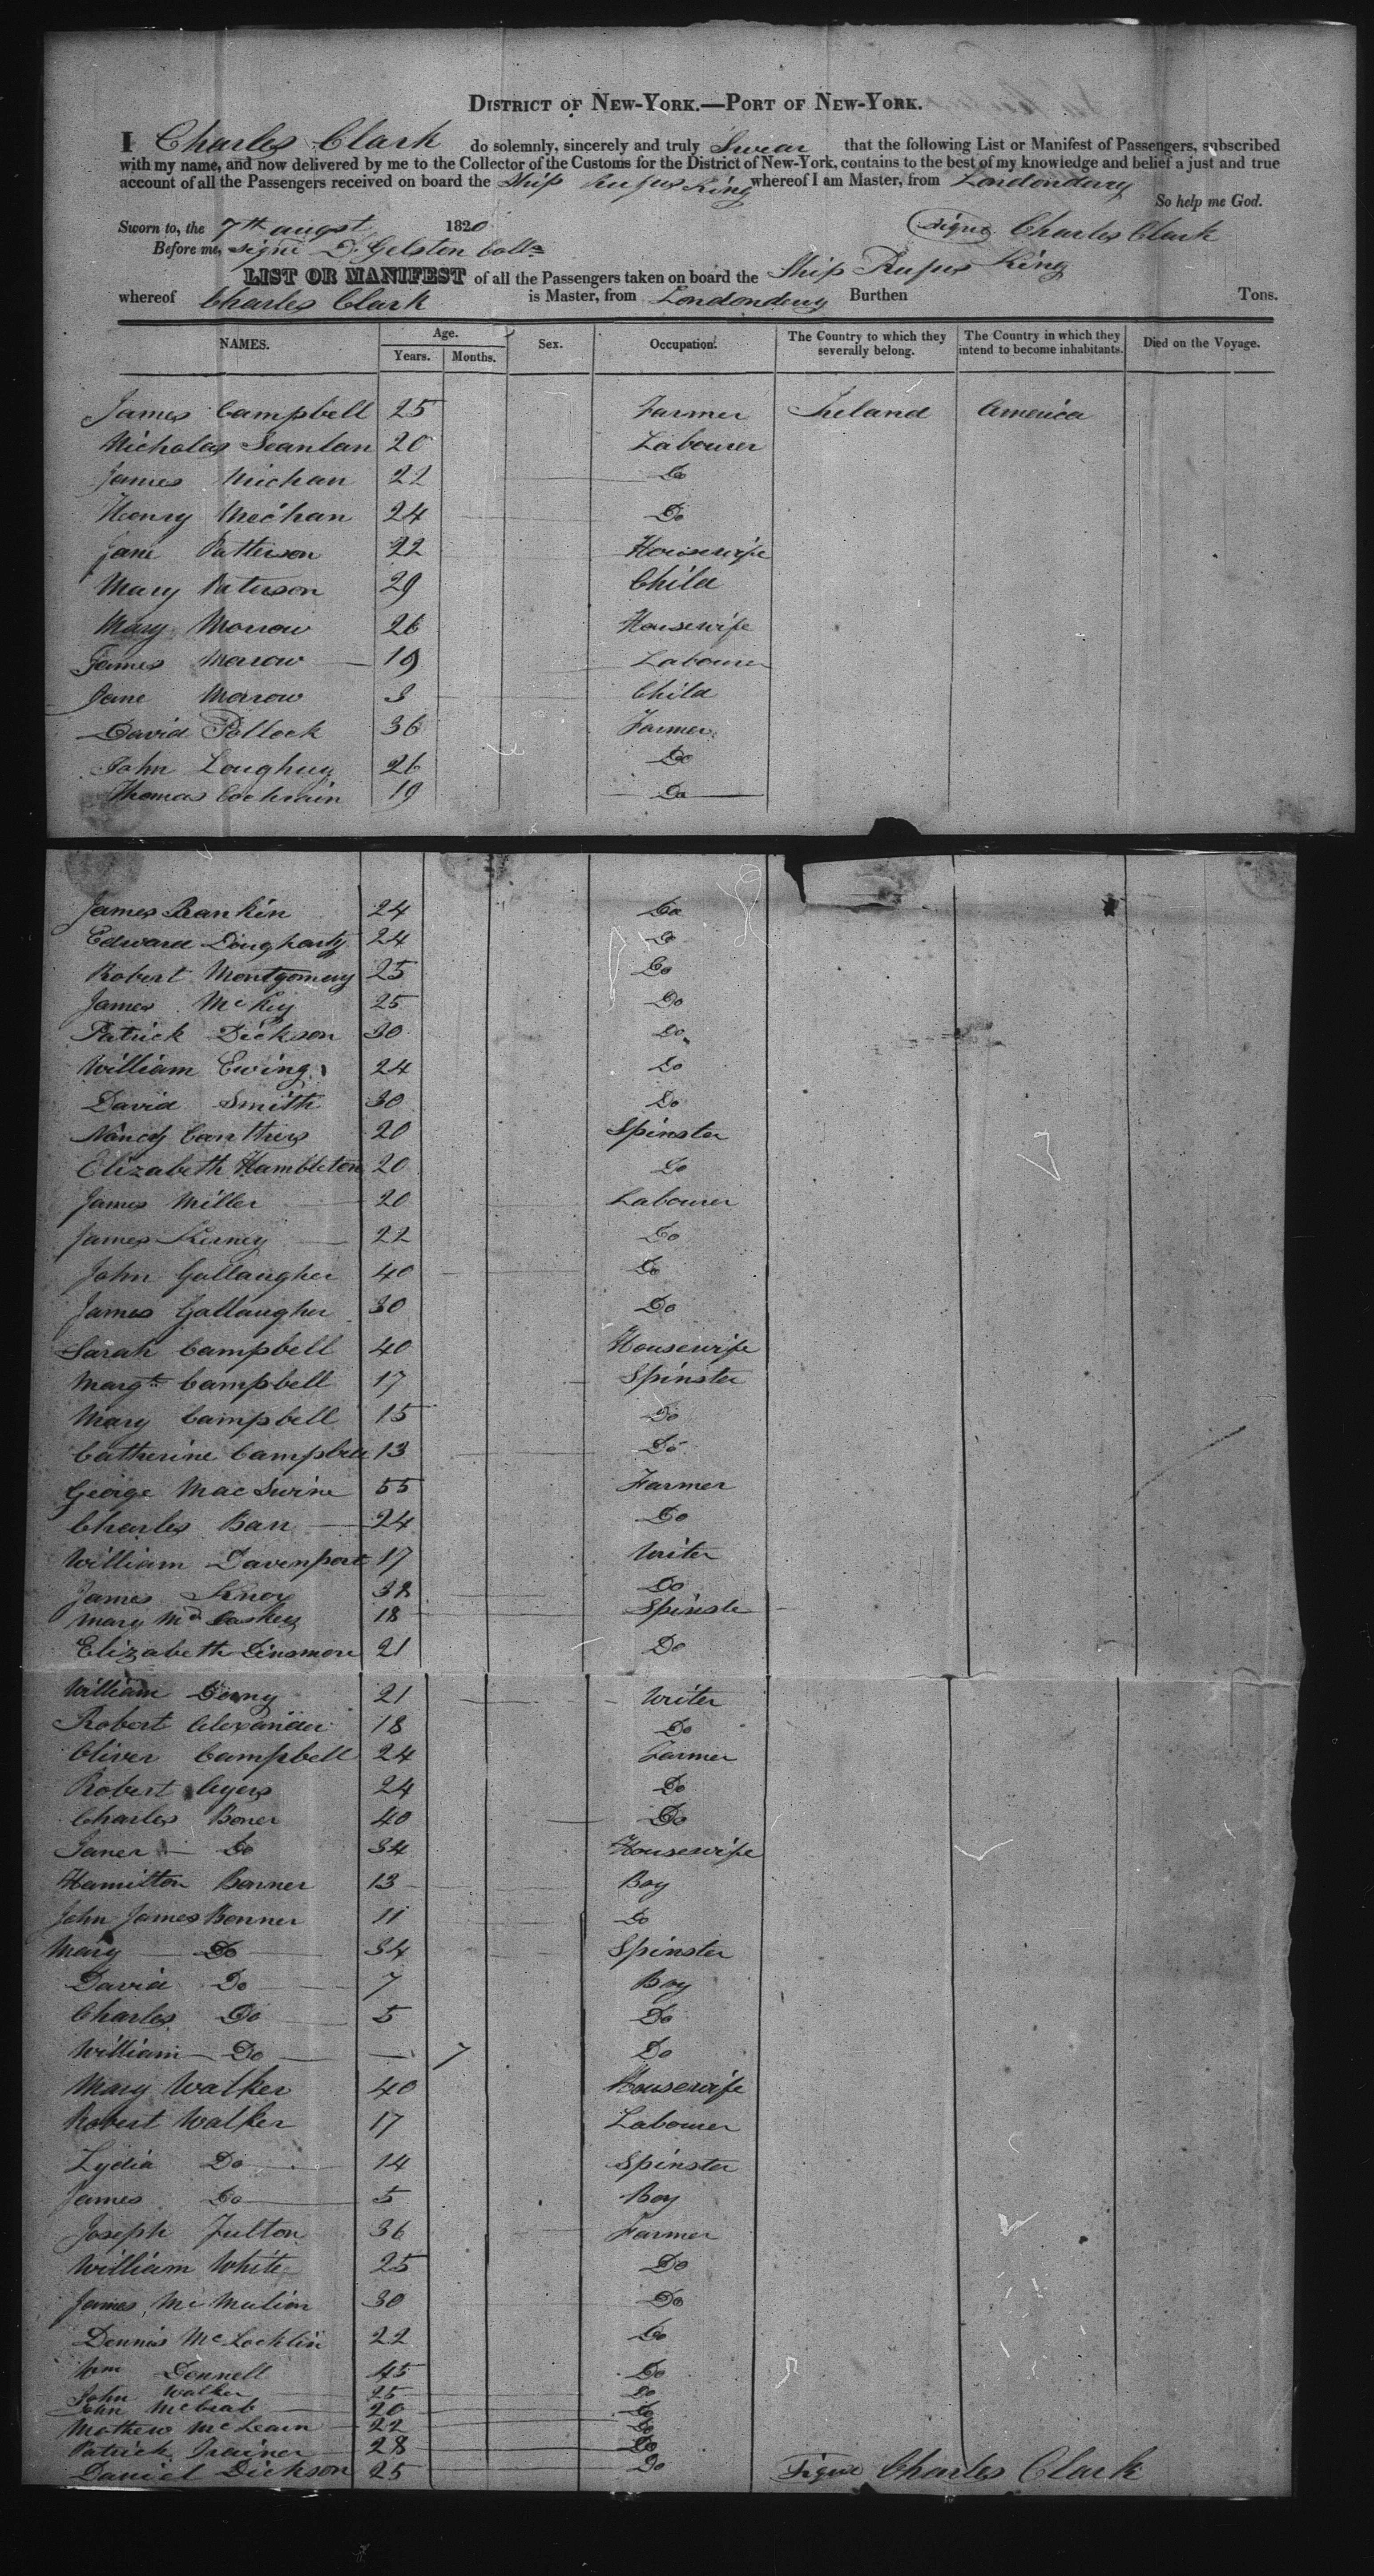 DISTRICT OF NEW-YORK.—PORT OF NEW-YORK.
I Charles Clark do solemnly, sincerely and truly Swear that the following List or Manifest of Passengers, subscribed
with my name, and now delivered by me to the Collector of the Customs for the District of New-York, contains to the best of my knowledge and belief a just and true
account of all the Passengers received on board the Ship Rufus King whereof I am Master, from Londonderry
So help me God.
Sworn to, the 7th augst 1820 signe Charles Clark
Before me, signe D. Gelston Coll
LIST OR MANIFEST of all the Passengers taken on board the Ship Rufus King
whereof Charles Clark is Master, from Londonderry Burthen Tons.
NAMES. Age. Years. Months. Sex. Occupation. The Country to which they severally belong. The Country in which they intend to become inhabitants. Died on the Voyage.
James Campbell 25 Farmer Ireland America
Nicholas Scanlan 20 Labourer
James Michan 22 Do
Henry Mechan 24 Do
Jane Patterson 22 Housewife
Mary Paterson 29 Child
Mary Morrow 26 Housewife
James Morrow 19 Labourer
Jane Morrow 3 Child
David Pollock 36 Farmer
John Loughuy 26 Do
Thomas Cochrain 19 Do
James Rankin 24 Do
Edward Dougharty 24 Do
Robert Montgomery 25 Do
James McKey 25 Do
Patrick Dickson 30 Do
William Ewing 24 Do
David Smith 30 Do
Nancy Carothers 20 Spinster
Elizabeth Hambleton 20 Do
James Miller 20 Labourer
James Kerney 22 Do
John Gallaugher 40 Do
James Gallaugher 30 Do
Sarah Campbell 40 Housewife
Margt Campbell 17 Spinster
Mary Campbell 15 Do
Catherine Campbell 13 Do
George MacSwine 55 Farmer
Charles Barr 24 Do
William Davenport 17 Writer
James Knox 38 Do
Mary McCaskey 18 Spinste
Elizabeth Dinsmore 21 Do
William 21 Writer
Robert Alexander 18 Do
Oliver Campbell 24 Farmer
Robert Ayers 24 Do
Charles Boner 40 Do
Janer Do 34 Housewife
Hamilton Bonner 13 Boy
John James Bonner 11 Do
Mary Do 34 Spinster
David Do 7 Boy
Charles Do 5 Do
William — Do — 7 Do
Mary Walker 40 Housewife
Robert Walker 17 Labourer
Lydia Do 14 Spinster
James Do 5 Boy
Joseph Fulton 36 Farmer
William White 25 Do
James McMulion 30 Do
Dennis McLocklin 22 Do
Wm Donnell 45 Do
John Walker 25 Do
John McCrab 20 Do
Mathew McLearn 22 Do
Patrick Trainer 28 Do
Daniel Dickson 25 Do Signe Charles Clark